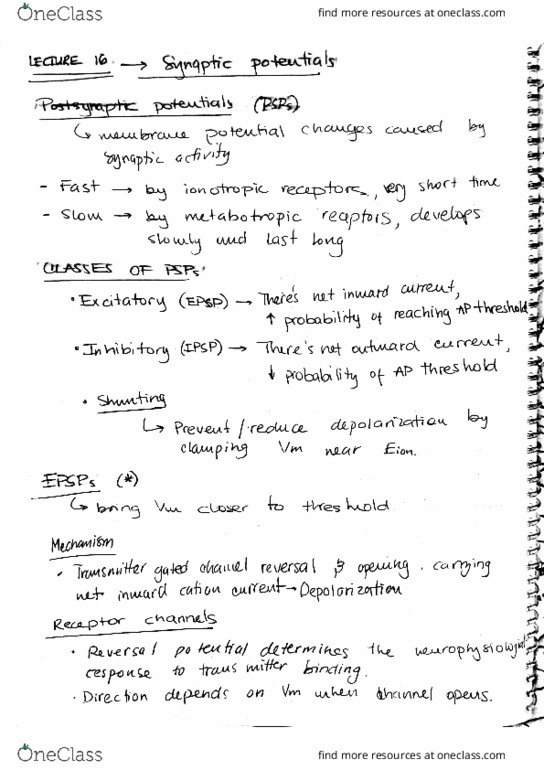 OneClass
find more resources at oneclass.com
LECTURE 16 → Synaptic potentials
Postsynaptic potentials (PSPs)
↳ membrane potential changes caused by
synaptic activity
- Fast → by ionotropic receptors, very short time
- Slow → by metabotropic reaptors, develops
slowly and last long
'CLASSES OF PSPs'
• Excitatory (EPSP) → There's net inward current,
↑ probability of reaching AP threshold
• Inhibitory (IPSP) → There's net outward current,
↓ probability of AP threshold
• Shunting
↳ Prevent/reduce depolarization by
clamping Vm near Eion.
EPSPs (*)
↳ bring Vm closer to threshold
Mechanism
• Transmitter gated channel reversal & opening. carrying
net inward cation current → Depolarization
Receptor channels
• Reversal potential determines the
response to transmitter binding.
• Direction depends on Vm when channel opens.
OneClass
find more resources at oneclass.com